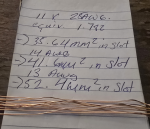 11 x 25AWG
Equiv 1.792
→) 35.64mm² in Slot
14 AWG
→) 41.6mm² in Slot
13 Awg
→) 52.4mm² in Slot